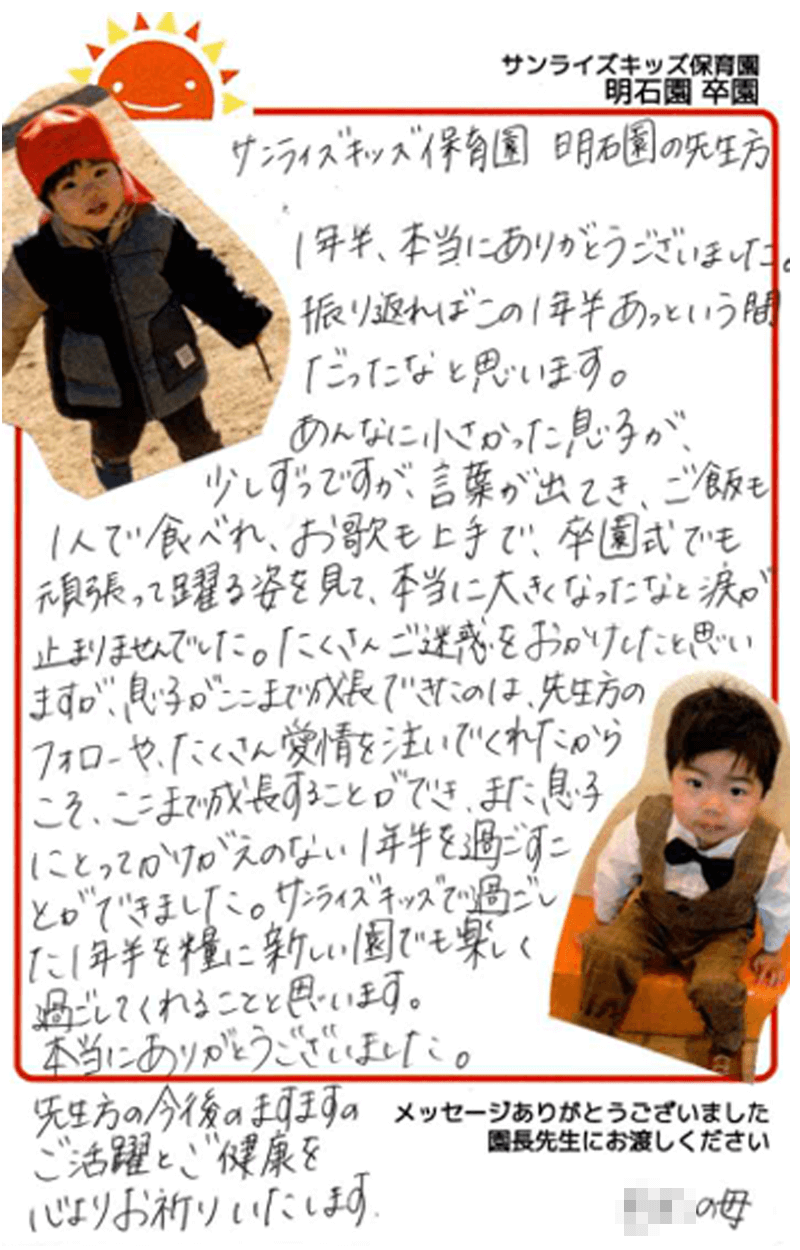 サンライズキッズ保育園
明石園 卒園
サンライズキッズ保育園 明石園の先生方
1年半、本当にありがとうございました。
振り返ればこの1年半あっという間
だったなと思います。
あんなに小さかった息子が、
少しずつですが、言葉が出てき、ご飯も
1人で食べれ、お歌も上手で、卒園式でも
頑張って躍る姿を見て、本当に大きくなったなと涙が
止まりませんでした。たくさんご迷惑をおかけしたと思い
ますが、息子がここまで成長できたのは、先生方の
フォローや、たくさん愛情を注いでくれたから
こそ、ここまで成長することができ、また息子
にとってかけがえのない1年半を過ごすこ
とができました。サンライズキッズで過ごし
た1年半を糧に新しい園でも楽しく
過ごしてくれることと思います。
本当にありがとうございました。
先生方の今後のますますの
ご活躍とご健康を
心よりお祈りいたします.
メッセージありがとうございました
園長先生にお渡しください
の母